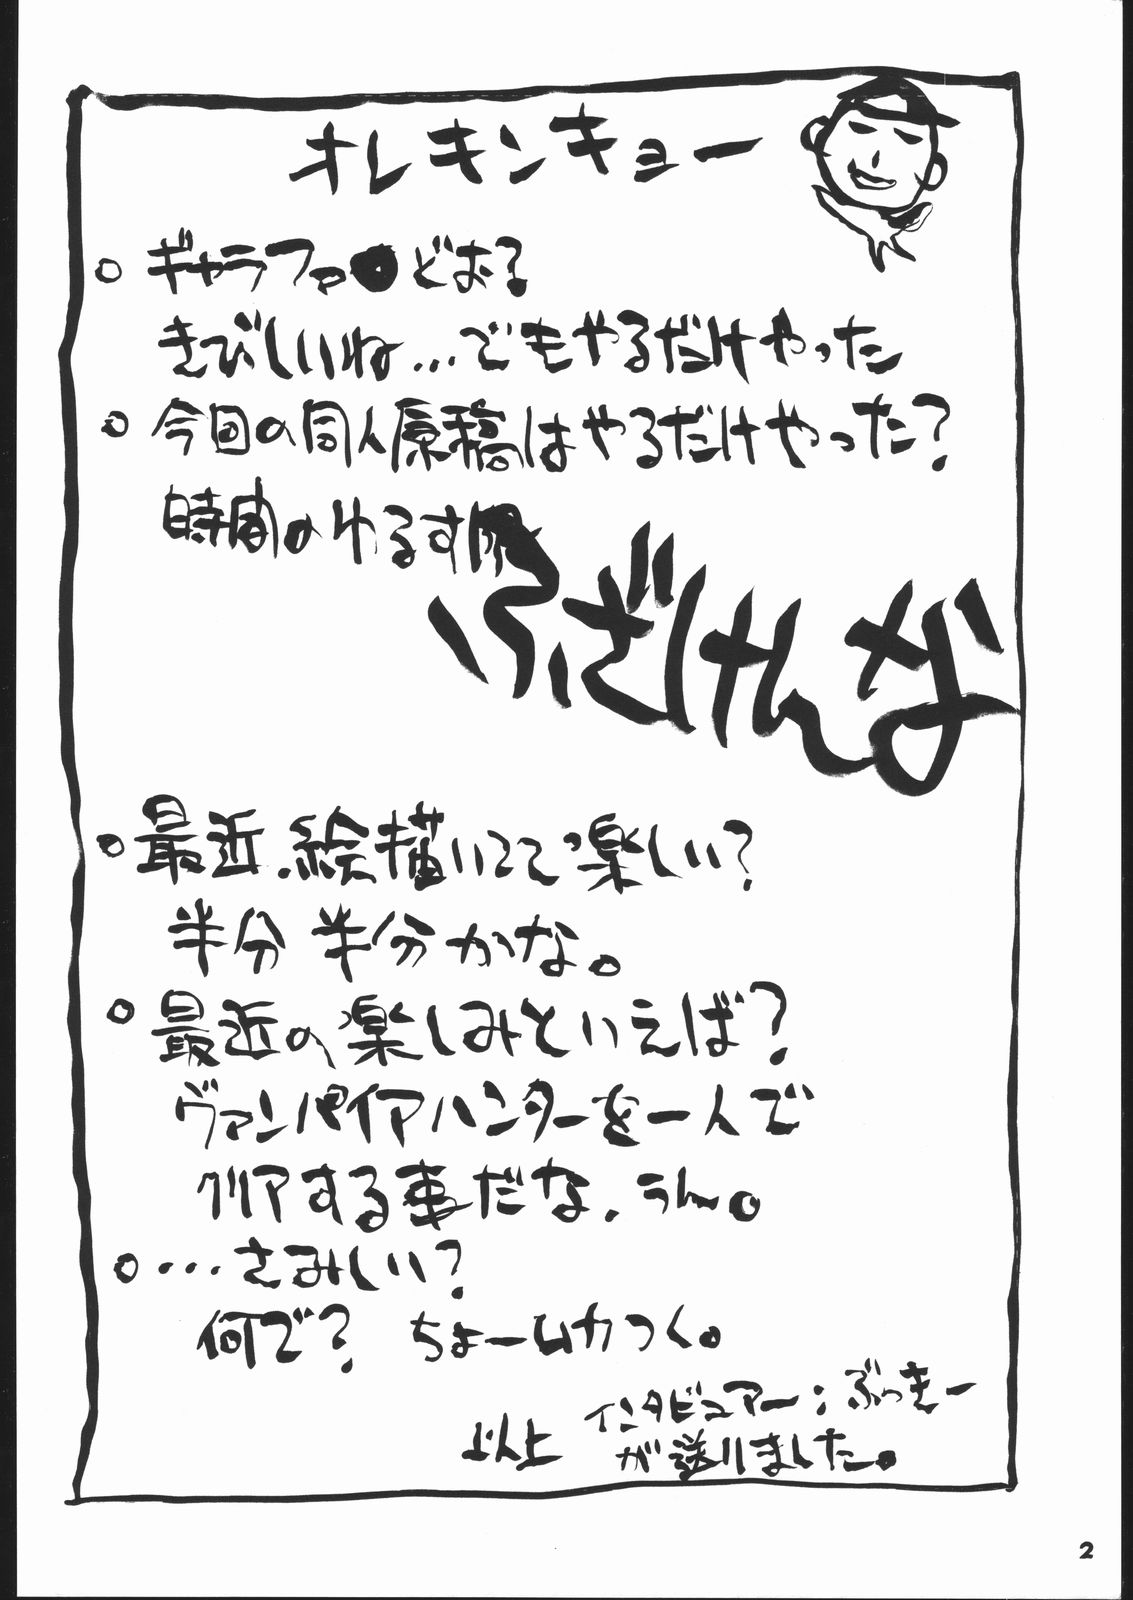 オレキンキョー
○ ギャラファ●どお?
きびしいね…でもやるだけやった
○ 今回の同人原稿はやるだけやった?
時間のゆるす
ふざけんな
○ 最近、絵描いてて楽しい?
半分半分かな。
○ 最近の楽しみといえば?
ヴァンパイアハンターを一人で
クリアする事だな、うん。
○ …さみしい?
何で? ちょームカつく。
インタビュアー:ぶっきー
が送りました。
以上
2